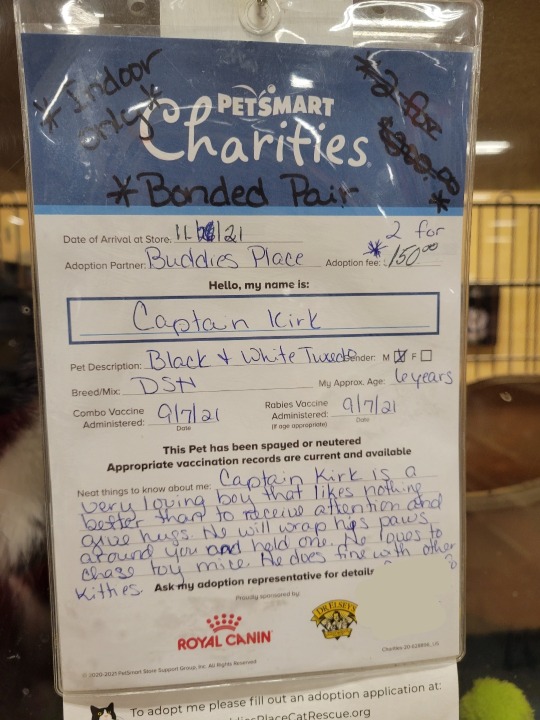 *Indoor only*
PETSMART Charities
*2 for $300.00*
*Bonded Pair
Date of Arrival at Store: 11/ /21
2 for
Adoption Partner: Buddies Place Adoption fee: *150.00
Hello, my name is:
Captain Kirk
Pet Description: Black & White Tuxedo Gender: M ☒ F ☐
Breed/Mix: DSH My Approx. Age: 6 years
Combo Vaccine Administered: 9/7/21 Date
Rabies Vaccine Administered: 9/7/21 Date
(if age appropriate)
This Pet has been spayed or neutered
Appropriate vaccination records are current and available
Neat things to know about me: Captain Kirk is a
very loving boy that likes nothing
better than to receive attention and
give hugs. He will wrap his paws
around you and hold one. He loves to
chase toy mice. He does fine with other
kitties.
Ask my adoption representative for details
Proudly sponsored by:
ROYAL CANIN
DR. ELSEY'S
© 2020-2021 PetSmart Store Support Group, Inc. All Rights Reserved
Charities 20-628856, US
To adopt me please fill out an adoption application at:
diesPlaceCatRescue.org